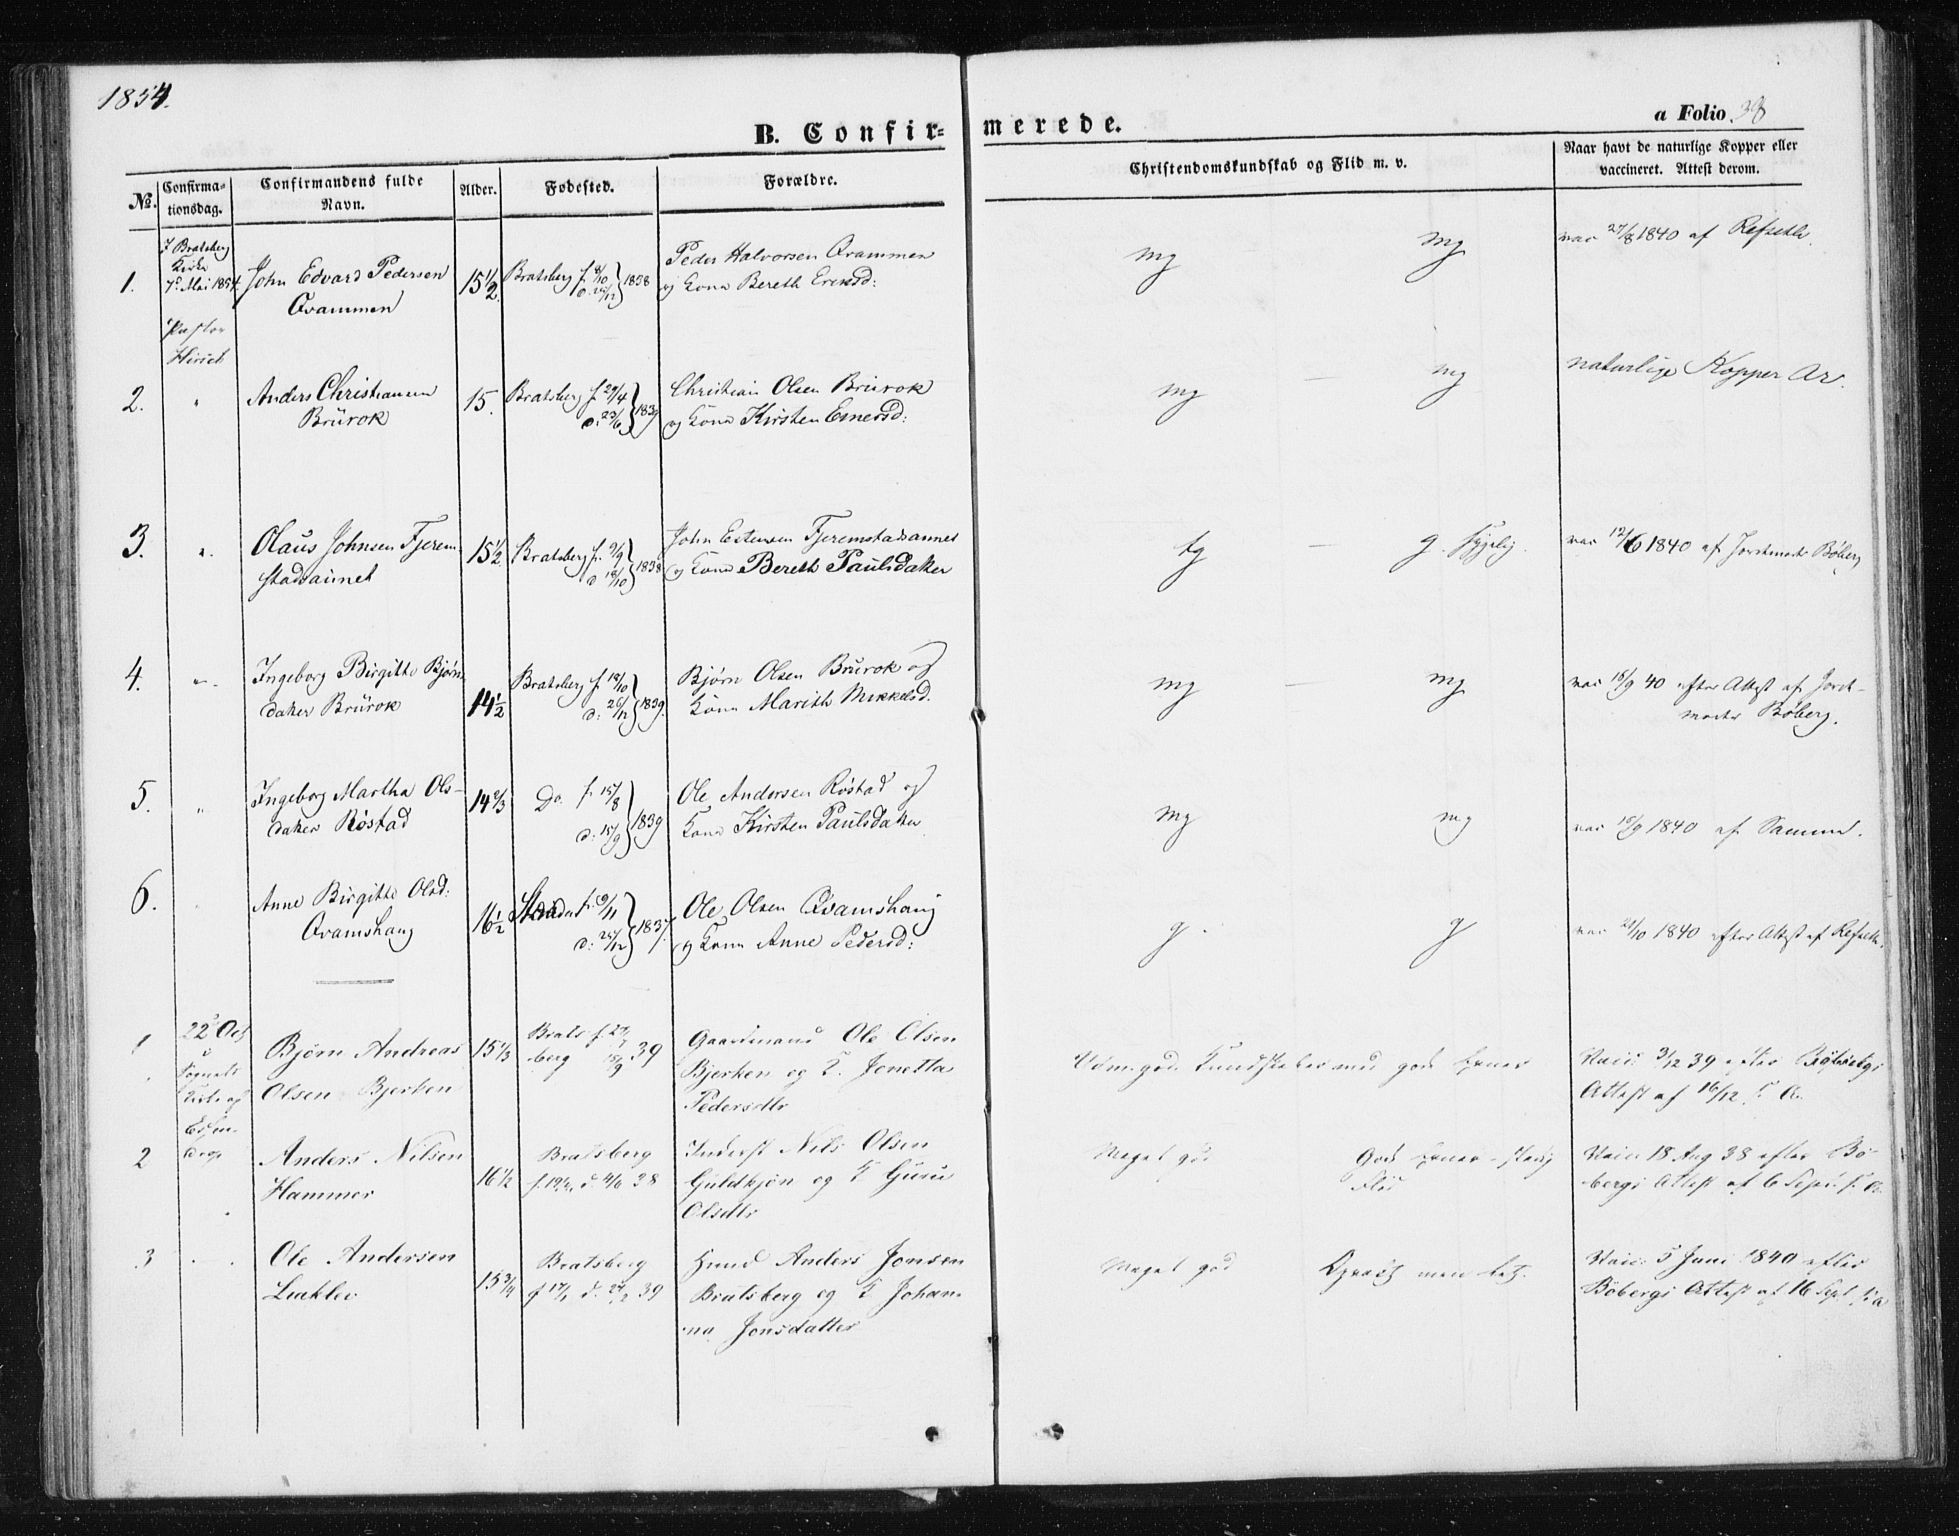 1854.
B. Confir- merede.
a Folio 38
No. Confirma-tionsdag. Confirmandens fulde Navn. Alder. Fødested. Forældre. Christendomskundskab og Flid m. v. Naar havt de naturlige Kopper eller vaccineret. Attest derom.
I Bratsberg
Kirke
7de Mai 1854.
Pastor
1. John Edvard Pedersen
Qvammen
15 1/2. Bratsberg f. 8/10 d. 26/12 } 1838
Peder Halvorsen Qvammen
og Kone Bereth Ericsd:
mg mg
vac 27/8 1840 af Refseth.
2. " Anders Christiansen
Brürok
15. Bratsberg f. 29/4 d. 23/6 } 1839
Christian Olsen Brürok
og Kone Kirsten Einersd:
mg — mg
naturlige Kopper Ar.
3. " Olaus Johnsen Fjerem-
stadaunet
15 1/2. Bratsberg f. 9/9 d. 18/10 } 1838
John Estensen Fjeremstadaunet
og Kone Bereth Paulsdatter
tg — g.
vac 12/6 1840 af Jordemoder Bøberg
4. " Ingeborg Birgitte Bjørns-
datter Brürok
14 1/2 Bratsberg f. 19/10 d: 26/12 } 1839.
Bjørn Olsen Brurok og
Kone Marith Mikkelsd.
mg — mg
vac 18/9 40 efter Attest af Jorde-
moder Bøberg.
5. " Ingeborg Martha Ols-
datter Röstad
14 2/3 Do. f. 15/8 d: 15/9 } 1839
Ole Andersen Röstad og
Kone Kirsten Paulsdatter
mg mg
vac 18/9 1840 af Samme.
6. Anne Birgitte Olsd:
Qvamshaug
16 1/2 f. 9/11 d: 25/12 } 1837.
Ole Olsen Qvamshaug
og Kone Anne Pedersd:
g. g
vac 21/10 1840 efter Attest af Refseth.
22de Oct
i
Sognets
Kirke af
1 Bjørn Andreas
Olsen Bjerken
15 1/3 Brats-
berg 39
Gaardmand Ole Olsen
Bjerken og K. Jenetta
Pedersdtr
Udm. god Kundskaber med gode Evner
Vacc: 3/12 39 efter Bøbergs
Attest af 16/12 s. A.
2 Anders Nilsen
Hammer
16 1/2 Bratsberg
d. 4/6 38
Inderst Nils Olsen
Guldkjøn og K Guru
Olsdtr
Meget god Gode Evner - stadig
Flid
Vacc: 18 Aug 38 efter Bø-
bergs Attest af 6 Sept. s. A.
3 " Ole Andersen
Leaklev
15 3/4 Bratsberg
f 17/1 d. 24/2 39
Huusmd Anders Jonsen
Bratsberg og K Johan-
na Jonsdatter
Meget god
Vacc: 5 Juni 1840 efter
Bøbergs Attest af 16 Sept s. A